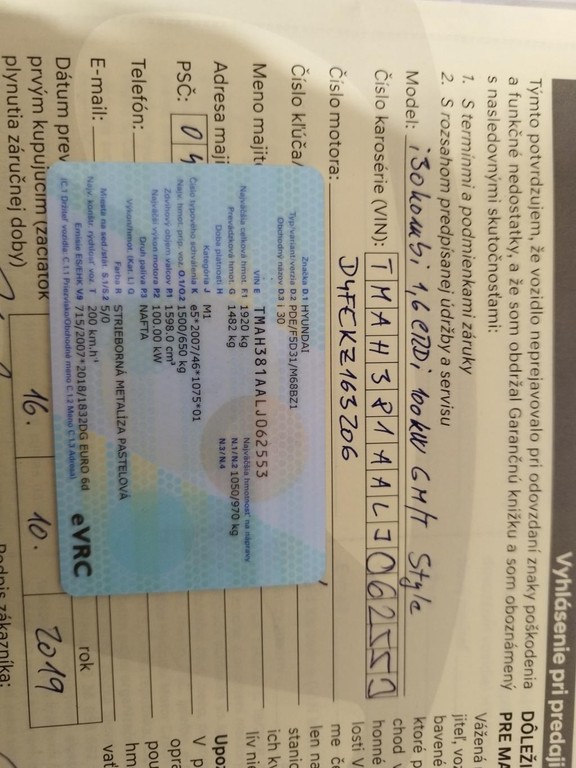 Vyhlásenie pri predaji
Týmto potvrdzujem, že vozidlo neprejavovalo pri odovzdaní znaky poškodenia
a funkčné nedostatky, a že som obdržal Garančnú knižku a som oboznámený
s nasledovnými skutočnosťami:
1. S termínmi a podmienkami záruky
2. S rozsahom predpísanej údržby a servisu
Model: i30 kombi 1,6 CRDi 100kW 6M/T Style
Číslo karosérie (VIN): TMAH381AALJ062553
Číslo motora: D4FEKZ163206
Číslo kľúča/
Meno majite
Adresa maji
PSČ: 0 4
Telefón:
E-mail:
Dátum prev
prvým kupujúcim (začiatok
plynutia záručnej doby)
16. 10. 2019
rok
Podpis zákazníka:
Značka D.1 HYUNDAI
Typ/variant/verzia D.2 PDE/F5D31/M68BZ1
Obchodný názov D.3 I 30
VIN E TMAH381AALJ062553
Najväčšia celková hmot. F.1 1920 kg
Prevádzková hmot. G 1482 kg
Najväčšia hmotnosť na nápravy
N.1/N.2 1050/970 kg
N.3/N.4
Doba platnosti H
Kategória J M1
Číslo typového schválenia K e5*2007/46*1075*01
Najv. hmot. príp. voz. O.1/O.2 1500/650 kg
Zdvihový objem valcov P.1 1598.0 cm³
Najväčší výkon motora P.2 100.00 kW
Druh paliva P.3 NAFTA
Výkon/hmot. (Kat. L) Q
Farba R STRIEBORNÁ METALÍZA PASTELOVÁ
Miesta na sed./stát. S.1/S.2 5/0
Najv. konštr. rýchlosť voz. T 200 km.h⁻¹
Emisie ES/EHK V.9 715/2007*2018/1832DG EURO 6d
eVRC
DÔLEŽI
PRE MA
Vážená
jiteľ, voz
bavené
ktoré p
chod v
honné
losti V
me č
stanic
len na
ich k
lív ni
Upo
V p
opra
pou
hm
vať